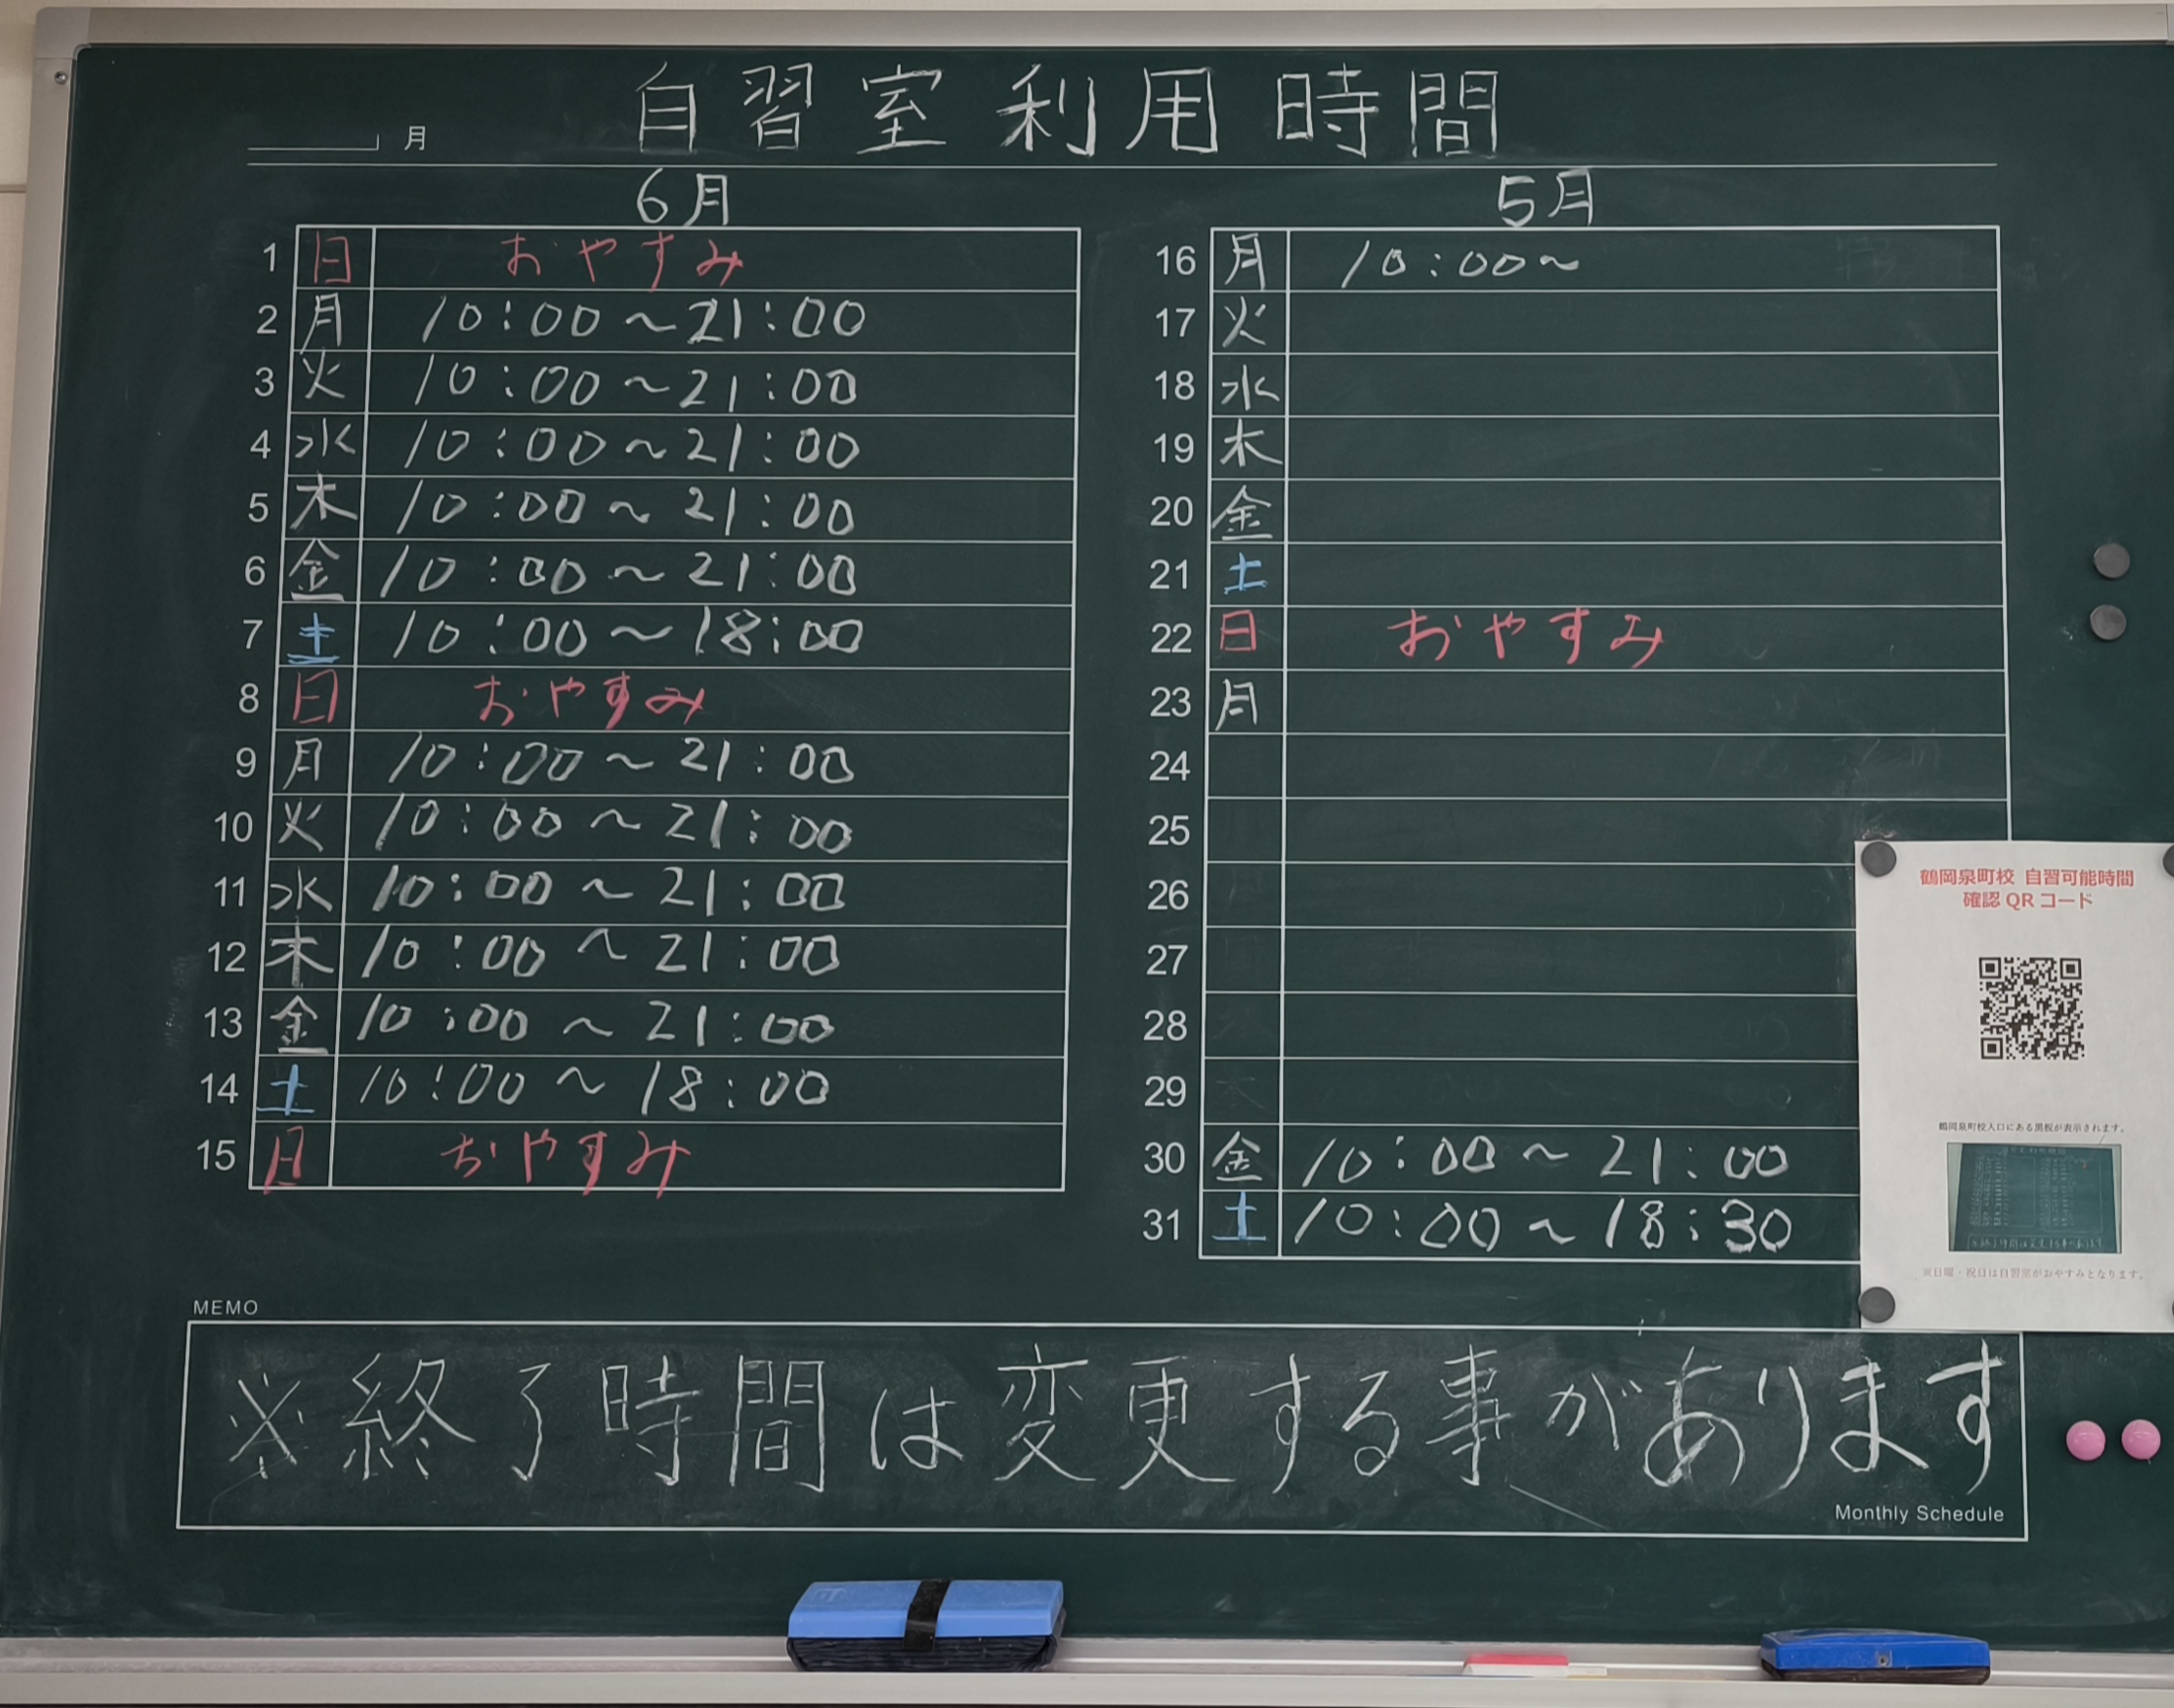 自習室利用時間
月
6月
1 日 おやすみ
2 月 10:00~21:00
3 火 10:00~21:00
4 水 10:00~21:00
5 木 10:00~21:00
6 金 10:00~21:00
7 土 10:00~18:00
8 日 おやすみ
9 月 10:00~21:00
10 火 10:00~21:00
11 水 10:00~21:00
12 木 10:00~21:00
13 金 10:00~21:00
14 土 10:00~18:00
15 日 おやすみ
5月
16 月 10:00~
17 火
18 水
19 木
20 金
21 土
22 日 おやすみ
23 月
24
25
26
27
28
29
30 金 10:00~21:00
31 土 10:00~18:30
鶴岡泉町校 自習可能時間
確認QRコード
鶴岡泉町校入口にある黒板が表示されます。
※日曜・祝日は自習室がおやすみとなります。
MEMO
※終了時間は変更する事があります
Monthly Schedule